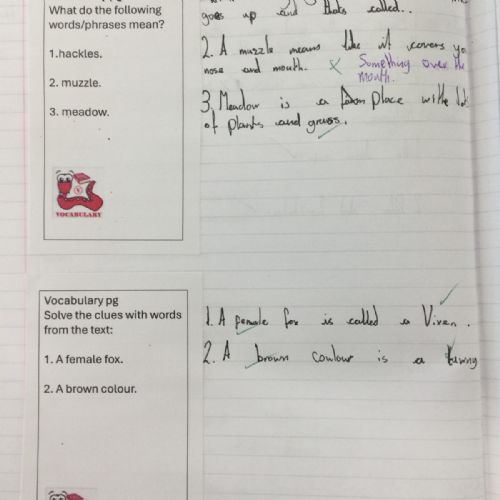 What do the following
words/phrases mean?
1.hackles.
2. muzzle.
3. meadow.
VOCABULARY
goes up and thats called..
2. A muzzle means like it covers yo
nose and mouth. x Something over the
mouth.
3. Meadow is a place withe lot
of plants and grass.
Vocabulary pg
Solve the clues with words
from the text:
1. A female fox.
2. A brown colour.
1. A female fox is called a Vixen.
2. A brown coulour is a